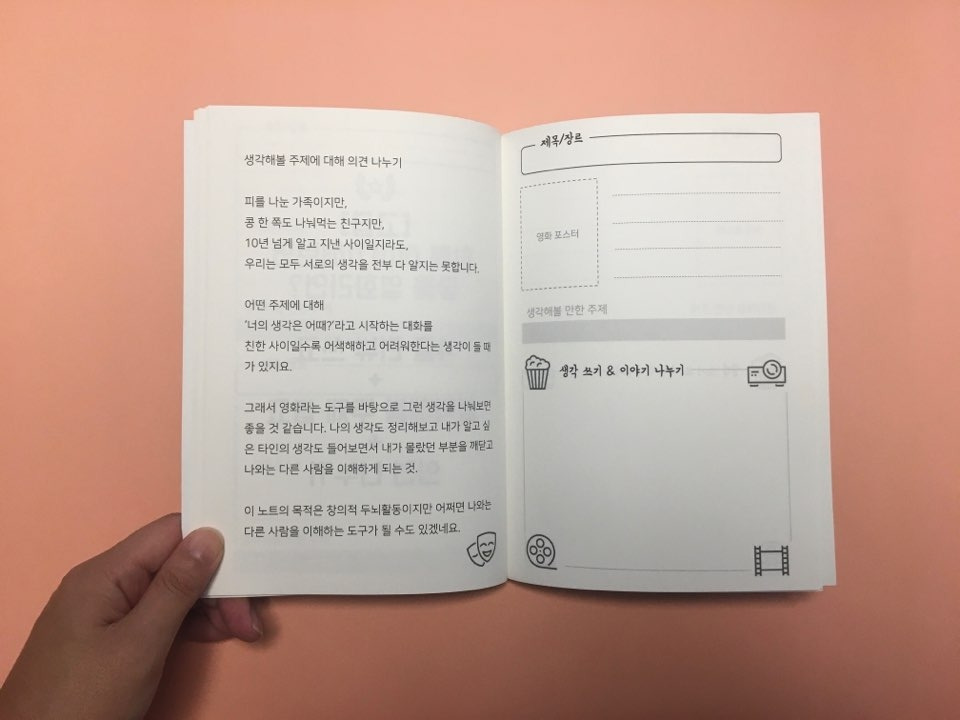 생각해볼 주제에 대해 의견 나누기
피를 나눈 가족이지만,
콩 한 쪽도 나눠먹는 친구지만,
10년 넘게 알고 지낸 사이일지라도,
우리는 모두 서로의 생각을 전부 다 알지는 못합니다.
어떤 주제에 대해
‘너의 생각은 어때?’라고 시작하는 대화를
친한 사이일수록 어색해하고 어려워한다는 생각이 들 때
가 있지요.
그래서 영화라는 도구를 바탕으로 그런 생각을 나눠보면
좋을 것 같습니다. 나의 생각도 정리해보고 내가 알고 싶
은 타인의 생각도 들어보면서 내가 몰랐던 부분을 깨닫고
나와는 다른 사람을 이해하게 되는 것.
이 노트의 목적은 창의적 두뇌활동이지만 어쩌면 나와는
다른 사람을 이해하는 도구가 될 수도 있겠네요.
제목/장르
영화 포스터
생각해볼 만한 주제
생각 쓰기 & 이야기 나누기